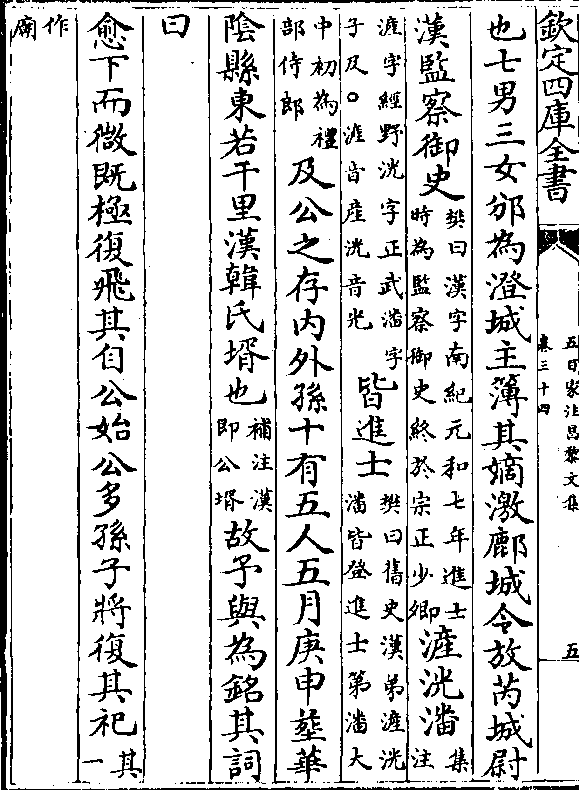 欽定四庫全書
五百家注昌黎文集
卷三十四
五
也七男三女邠為澄城主簿其嫡激鄜城令放芮城尉
漢監察御史樊曰漢字南紀元和七年進士時為監察御史終於宗正少卿滻洸潘集注
滻字經野洸字正武潘字子及○滻音產洸音光皆進士樊曰舊史漢弟滻洸潘皆登進士第潘大
中初為禮部侍郎及公之存内外孫十有五人五月庚申塟華
陰縣東若干里漢韓氏壻也補注漢即公壻故予與為銘其詞
曰
愈下而微既極復飛其自公始公多孫子將復其祀一其
作廟